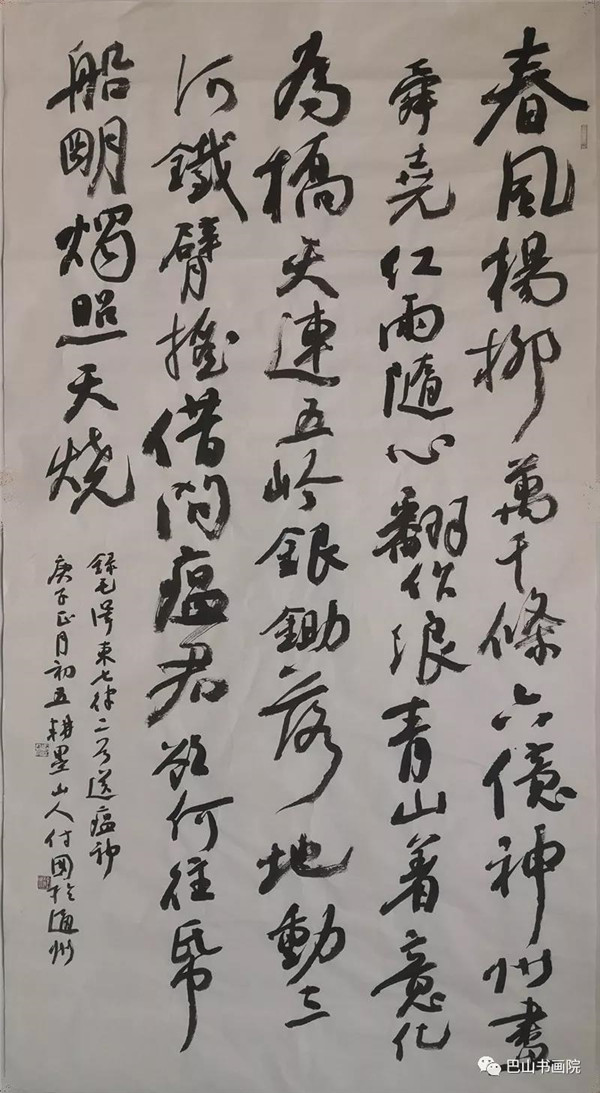 春風楊柳萬千條六億神州盡
舜堯红雨隨心翻作浪青山着意化
為橋天連五岭銀鋤落地動三
河鐵臂摇借問瘟君欲何往帋
船明燭照天燒
録毛澤東七律二首送瘟神
庚子正月初五耕墨山人付國於通州
巴山书画院